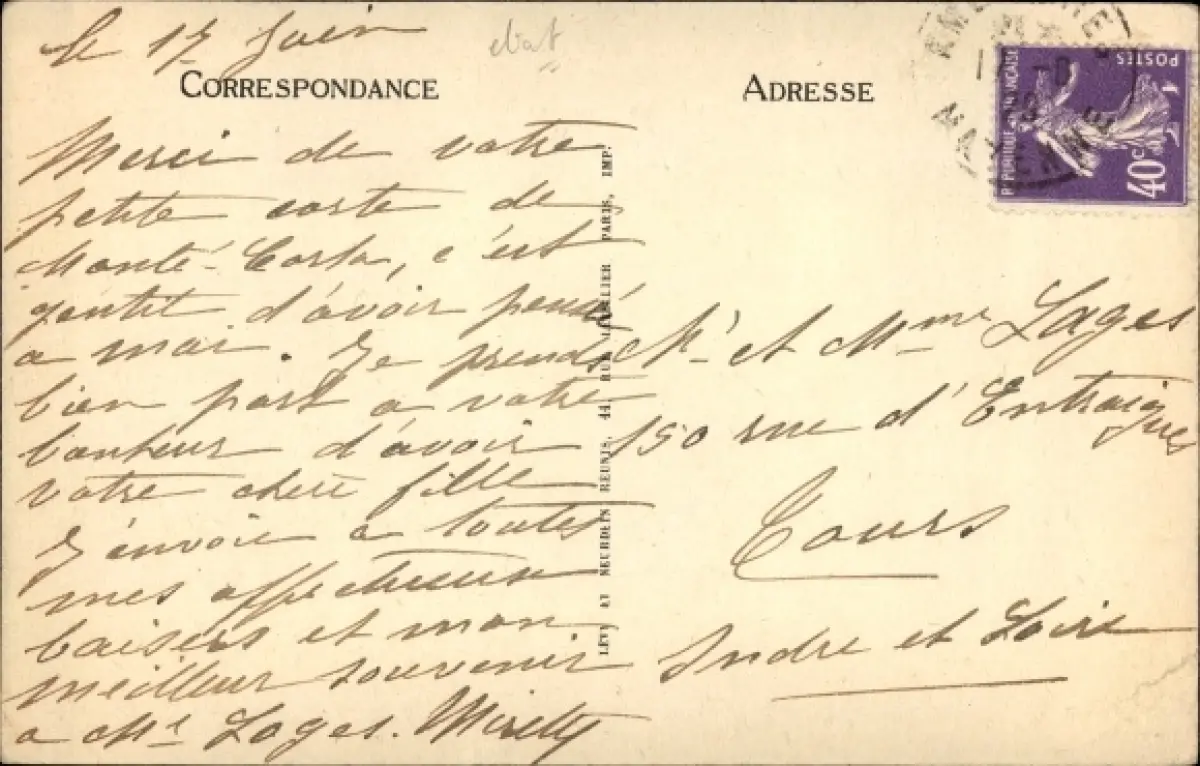 le 17 Juin
ebat
CORRESPONDANCE
Merci de votre
petite carte de
Monté-Carlo, c'est
gentil d'avoir pensé
a moi. Je prends
bien part a votre
bonheur d'avoir
votre chère fille
J'envoie a toutes
mes affectueux
baisers et mon
meilleur souvenir
a Mr Lages. Miretty
LEVY ET NEURDEIN REUNIS, 44, RUE LETELLIER PARIS, IMP.
ADRESSE
REPUBLIQUE FRANÇAISE
POSTES
40c
Mr et Mme Lages
150 rue d'Entraigues
Tours
Indre et Loire